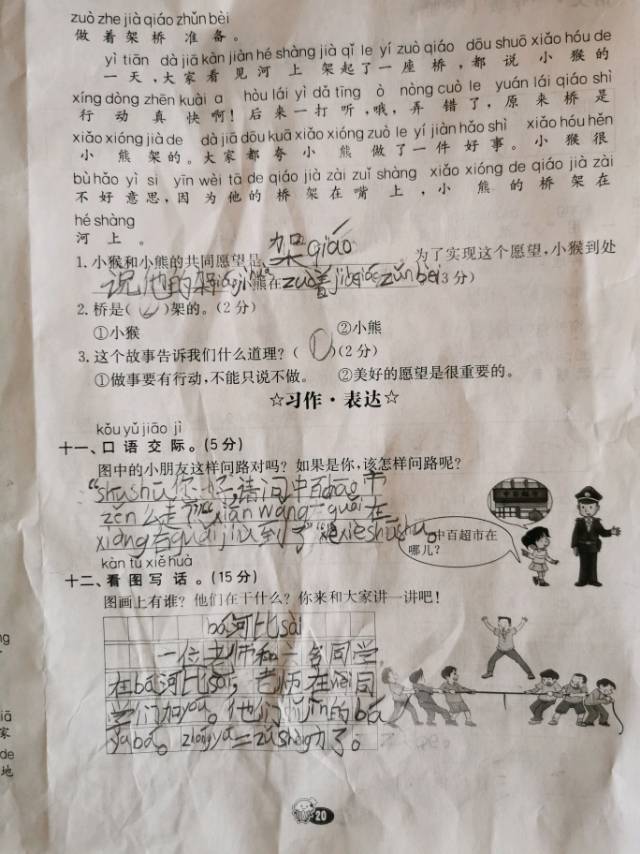 zuò zhe jià qiáo zhǔn bèi
做着架桥准备。
yì tiān dà jiā kàn jiàn hé shàng jià qǐ le yí zuò qiáo dōu shuō xiǎo hóu de
一天，大家看见河上架起了一座桥，都说小猴的
xíng dòng zhēn kuài a hòu lái yì dǎ tīng ò nòng cuò le yuán lái qiáo shì
行动真快啊！后来一打听，哦，弄错了，原来桥是
xiǎo xióng jià de dà jiā dōu kuā xiǎo xióng zuò le yí jiàn hǎo shì xiǎo hóu hěn
小熊架的。大家都夸小熊做了一件好事。小猴很
bù hǎo yì si yīn wèi tā de qiáo jià zài zuǐ shàng xiǎo xióng de qiáo jià zài
不好意思，因为他的桥架在嘴上，小熊的桥架在
hé shàng
河上。
1. 小猴和小熊的共同愿望是 架qiáo 为了实现这个愿望，小猴到处
说他的 小熊在zuò着jià qiáo zǔn bèi(3分)
2. 桥是( )架的。(2分)
①小猴 ②小熊
3. 这个故事告诉我们什么道理？( )(2分)
①做事要有行动，不能只说不做。 ②美好的愿望是很重要的。
☆习作·表达☆
kǒu yǔ jiāo jì
十一、口语交际。(5分)
图中的小朋友这样问路对吗？如果是你，该怎样问路呢？
“shūshu你好，请问中百chāo市
zěn么走？”“xiàn wǎng 一guǎi在
xiàng右guǎi jiù到了”“xièxie shūshu。
中百超市在
哪儿？
kàn tú xiě huà
十二、看图写话。(15分)
图画上有谁？他们在干什么？你来和大家讲一讲吧！
bá河比sài
一位老师和一名同学
在bá河比sài，老师在wèi同
学们加yóu。他们 jìn的bá
ya bá。 zuǒ 二zǔ shèng力了。
20
iā
家
de
地